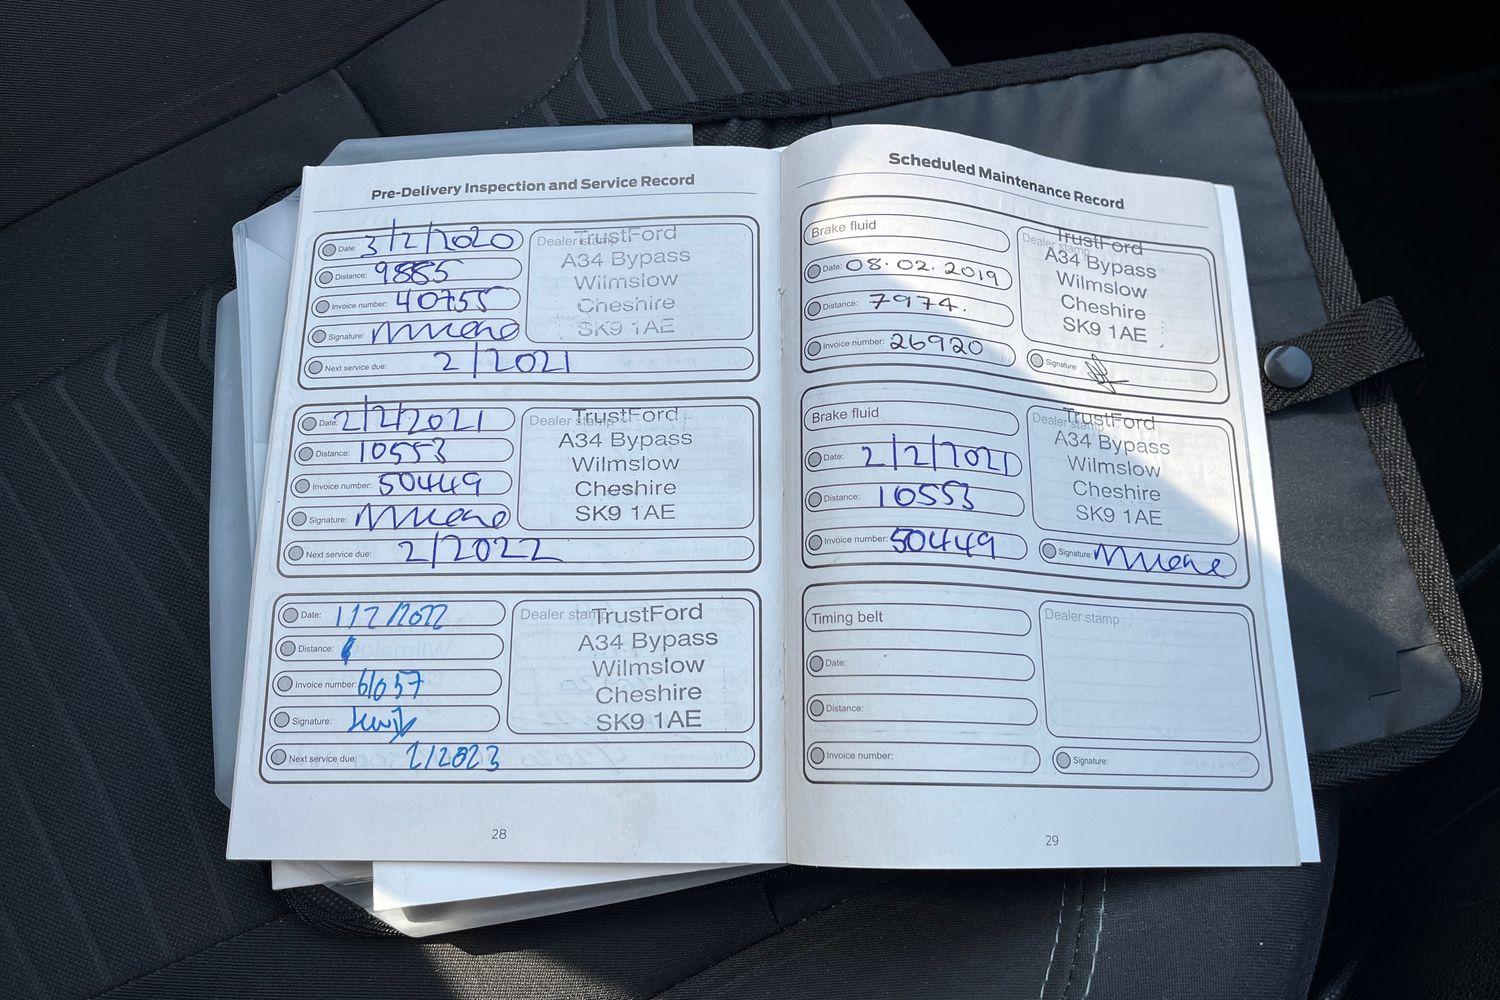 Pre-Delivery Inspection and Service Record
Date: 3/2/2020
Distance: 9885
Invoice number: 40755
Signature:
Next service due: 2/2021
Dealer stamp
TrustFord
A34 Bypass
Wilmslow
Cheshire
SK9 1AE
Date: 2/2/2021
Distance: 10553
Invoice number: 50449
Signature:
Next service due: 2/2022
Dealer stamp
TrustFord
A34 Bypass
Wilmslow
Cheshire
SK9 1AE
Date: 1/2/2022
Distance:
Invoice number: 61057
Signature:
Next service due: 2/2023
Dealer stamp
TrustFord
A34 Bypass
Wilmslow
Cheshire
SK9 1AE
28
Scheduled Maintenance Record
Brake fluid
Date: 08.02.2019
Distance: 7974.
Invoice number: 26920
Dealer stamp
TrustFord
A34 Bypass
Wilmslow
Cheshire
SK9 1AE
Signature:
Brake fluid
Date: 2/2/2021
Distance: 10553
Invoice number: 50449
Dealer stamp
TrustFord
A34 Bypass
Wilmslow
Cheshire
SK9 1AE
Signature:
Timing belt
Date:
Distance:
Invoice number:
Dealer stamp
Signature:
29